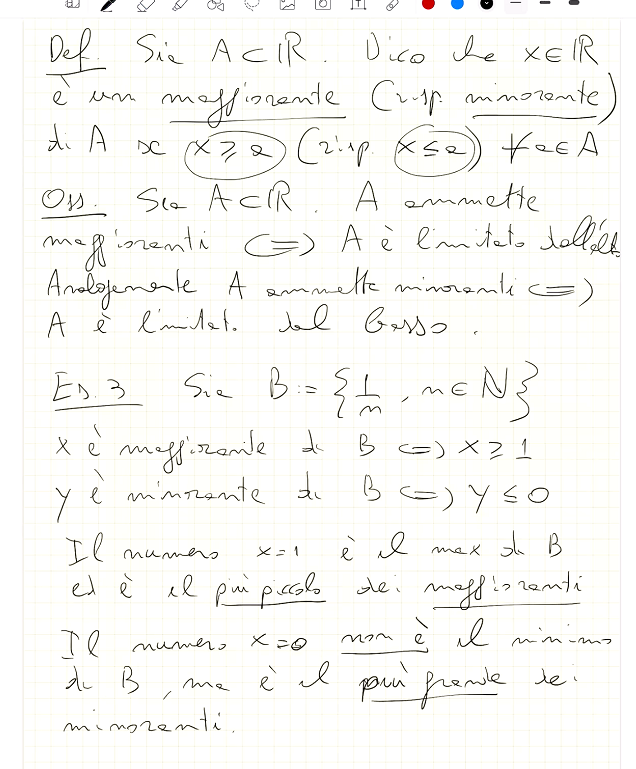 Def. Sia A ⊂ ℝ. Dico che x ∈ ℝ
è un maggiorante (risp. minorante)
di A se x ≥ a (risp. x ≤ a) ∀ a ∈ A
Oss. Sia A ⊂ ℝ. A ammette
maggioranti <=> A è limitato dall'alto
Analogamente A ammette minoranti <=>
A è limitato dal basso.
Es. 3 Sia B := {1/n, n ∈ ℕ}
x è maggiorante di B <=> x ≥ 1
y è minorante di B <=> y ≤ 0
Il numero x=1 è il max di B
ed è il più piccolo dei maggioranti
Il numero x=0 non è il minimo
di B, ma è il più grande dei
minoranti.